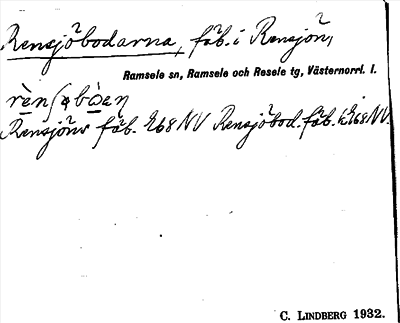 Rensjöbodarna, fäb. i Rensjön,
Ramsele sn, Ramsele och Resele tg, Västernorrl. l.
Rensjöns fäb. E68 NV Rensjöbod. fäb. E68 NV.
C. LINDBERG 1932.